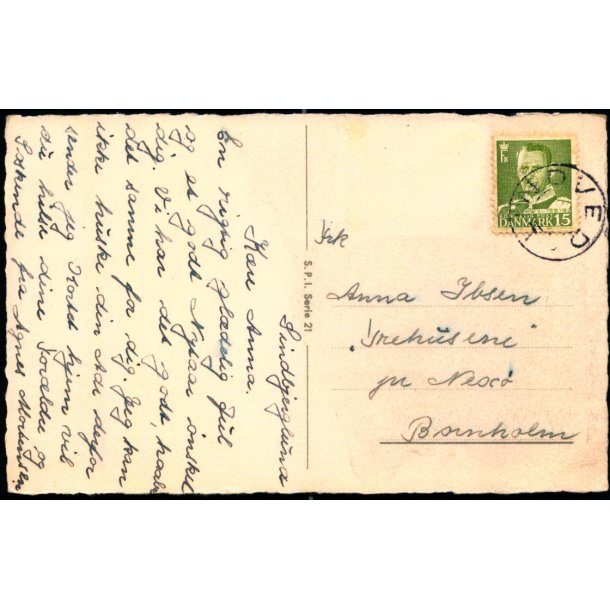 Lindbjerglund
Kære Anna.
En rigtig glædelig Jul
og et godt Nytaar ønskes
dig. Vi har det godt, haaber
det samme for dig. Jeg kan
ikke huske din Adr derfor
sender jeg Kortet hjem vil
du hilse dine Forældre og
Søskende fra Agnes Mortensen.
S.P.I. Serie 21
Frk
Anna Ibsen
"Trehúsene"
pr Nexø
Bornholm
DANMARK 15